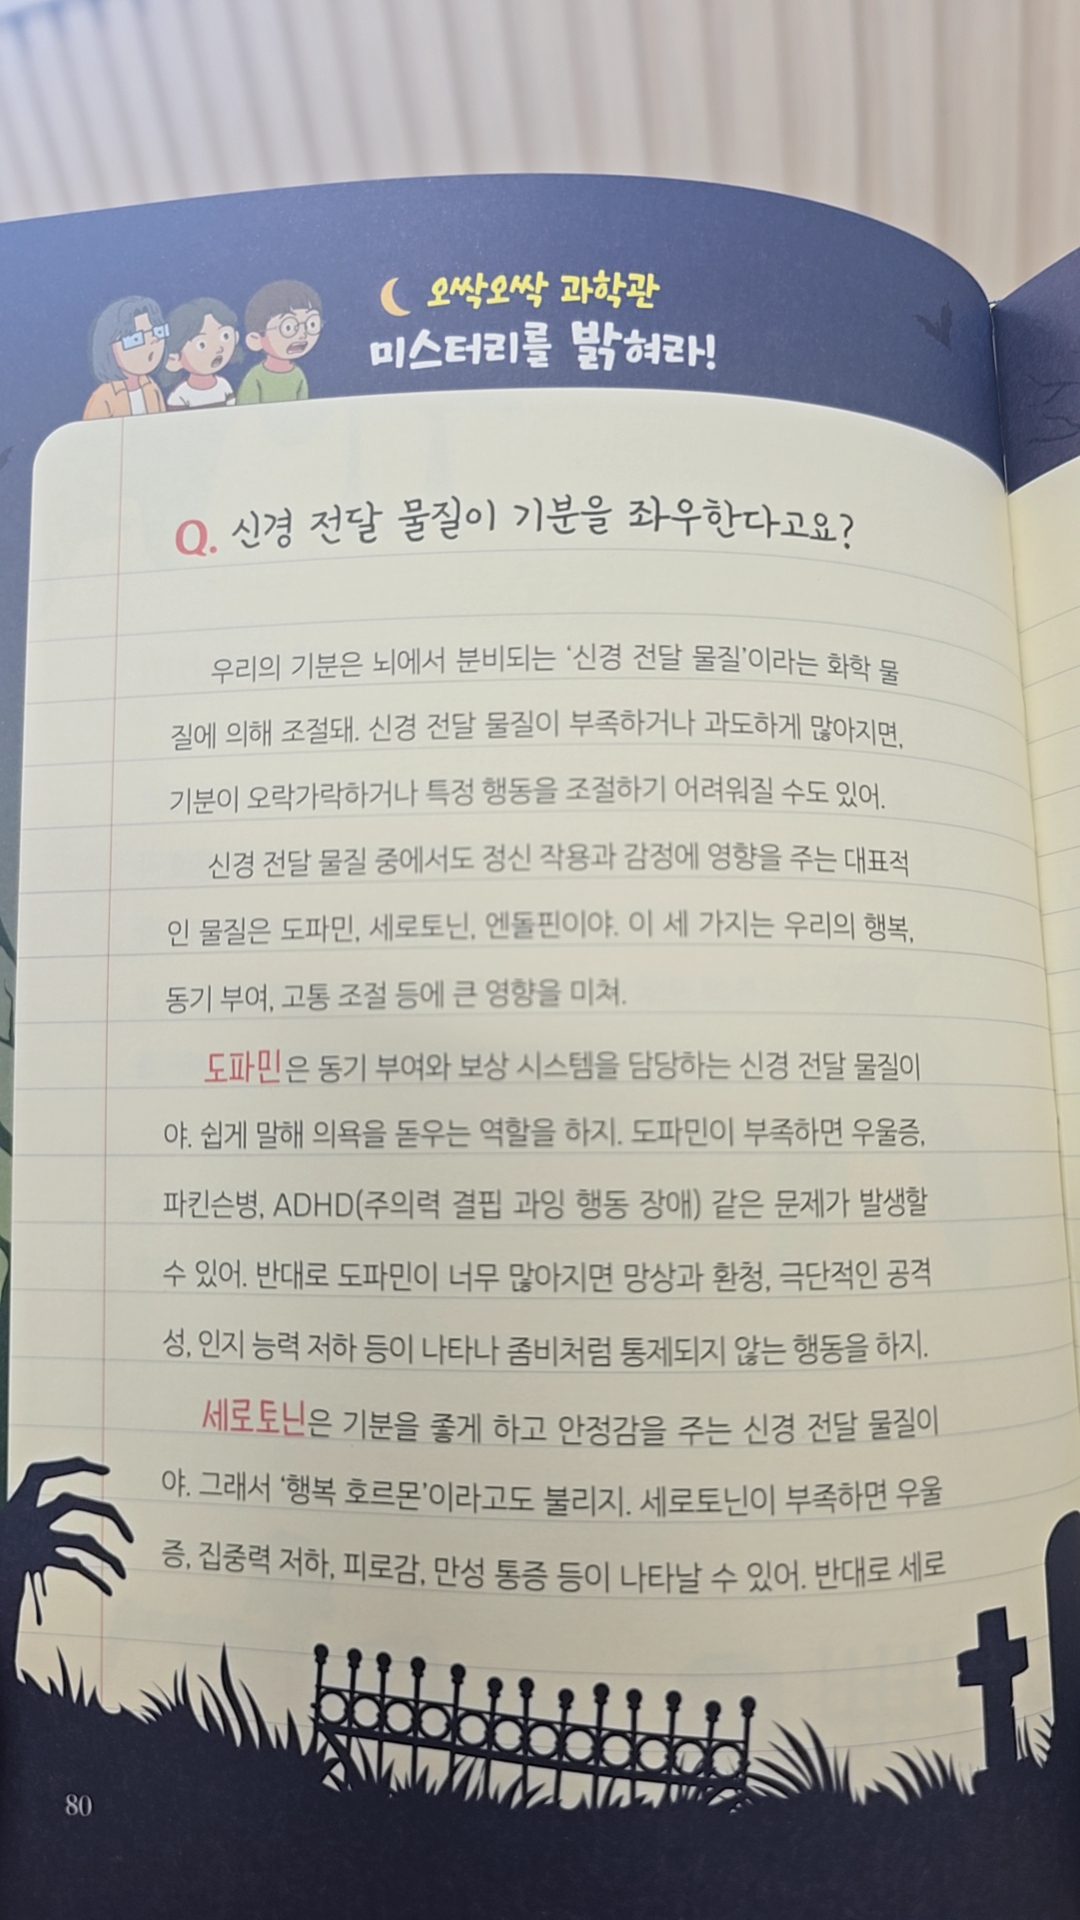 오싹오싹 과학관
미스터리를 밝혀라!
Q. 신경 전달 물질이 기분을 좌우한다고요?
우리의 기분은 뇌에서 분비되는 ‘신경 전달 물질’이라는 화학 물
질에 의해 조절돼. 신경 전달 물질이 부족하거나 과도하게 많아지면,
기분이 오락가락하거나 특정 행동을 조절하기 어려워질 수도 있어.
신경 전달 물질 중에서도 정신 작용과 감정에 영향을 주는 대표적
인 물질은 도파민, 세로토닌, 엔돌핀이야. 이 세 가지는 우리의 행복,
동기 부여, 고통 조절 등에 큰 영향을 미쳐.
도파민은 동기 부여와 보상 시스템을 담당하는 신경 전달 물질이
야. 쉽게 말해 의욕을 돋우는 역할을 하지. 도파민이 부족하면 우울증,
파킨슨병, ADHD(주의력 결핍 과잉 행동 장애) 같은 문제가 발생할
수 있어. 반대로 도파민이 너무 많아지면 망상과 환청, 극단적인 공격
성, 인지 능력 저하 등이 나타나 좀비처럼 통제되지 않는 행동을 하지.
세로토닌은 기분을 좋게 하고 안정감을 주는 신경 전달 물질이
야. 그래서 ‘행복 호르몬’이라고도 불리지. 세로토닌이 부족하면 우울
증, 집중력 저하, 피로감, 만성 통증 등이 나타날 수 있어. 반대로 세로
80